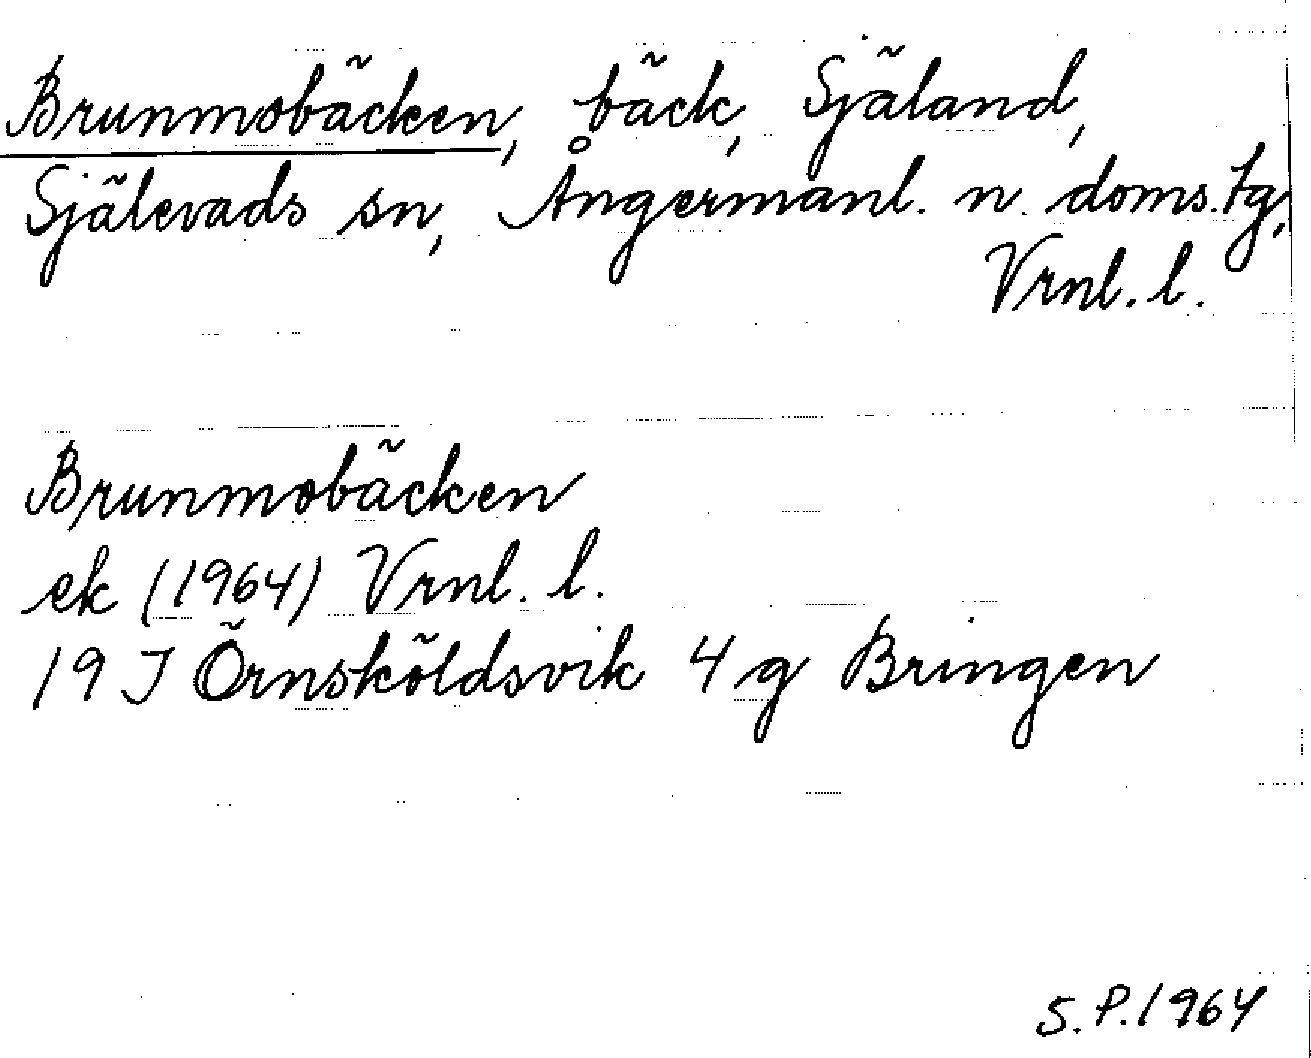 Brunmobäcken, bäck, Själand,
Själevads sn, Ångermanl. n. doms. tg,
Vrnl. l.
Brunmobäcken
ek (1964) Vrnl. l.
19 J Örnsköldsvik 4 g Bringen
S. P. 1964